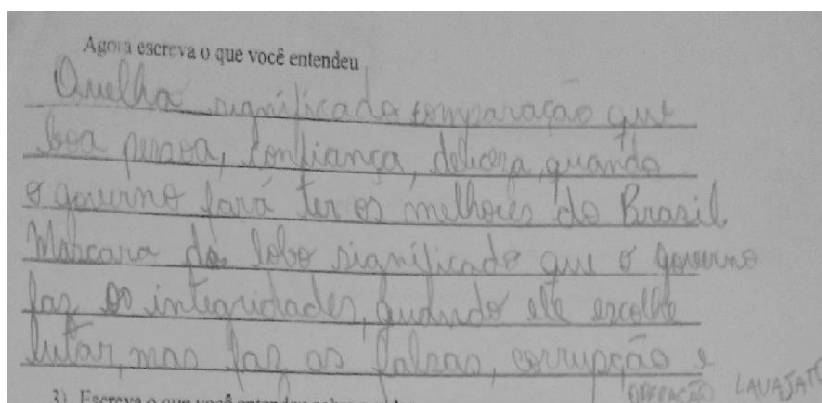 Agora escreva o que você entendeu
Ouelha significado comparação que
boa pessoa, confiança, delicera, quando
o governo fará ter os melhores do Brasil
Máscara do lobo significado que o governo
faz as integridades, quando ele escolhe
lutar, mas faz as falsas, corrupção e
OPERAÇÃO LAVAJATO
3) Escreva o que você entendeu sobre